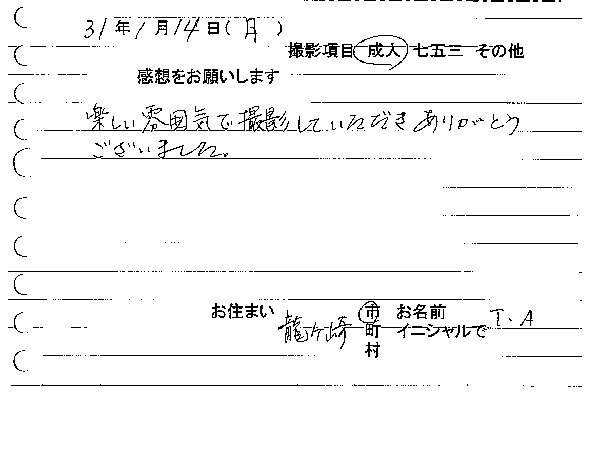 31年1月14日(月)
撮影項目 成人 七五三 その他
感想をお願いします
楽しい雰囲気で撮影していただきありがとう
ございました。
お住まい 龍ヶ崎 市 町 村 お名前 イニシャルで T.A